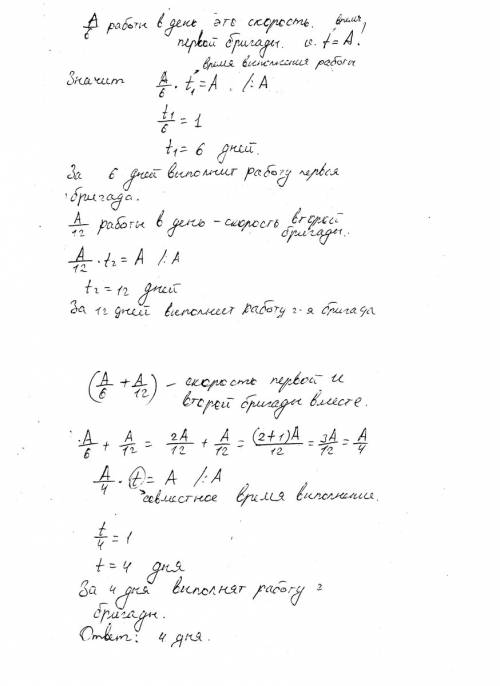 A/6 работы в день это скорость. время,
первой бригады. v. t = A.
время выполнения работы
Значит A/6 · t₁ = A. /: A
t₁/6 = 1
t₁ = 6 дней.
За 6 дней выполнит работу первая
бригада.
A/12 работы в день – скорость второй
бригады.
A/12 · t₂ = A /: A
t₂ = 12 дней
За 12 дней выполнит работу 2-я бригада
(A/6 + A/12) – скорость первой и
второй бригады вместе.
A/6 + A/12 = 2A/12 + A/12 = (2+1)A/12 = 3A/12 = A/4
A/4 · t = A /: A
совместное время выполнение.
t/4 = 1
t = 4 дня
За 4 дня выполнят работу 2
бригады.
Ответ: 4 дня.